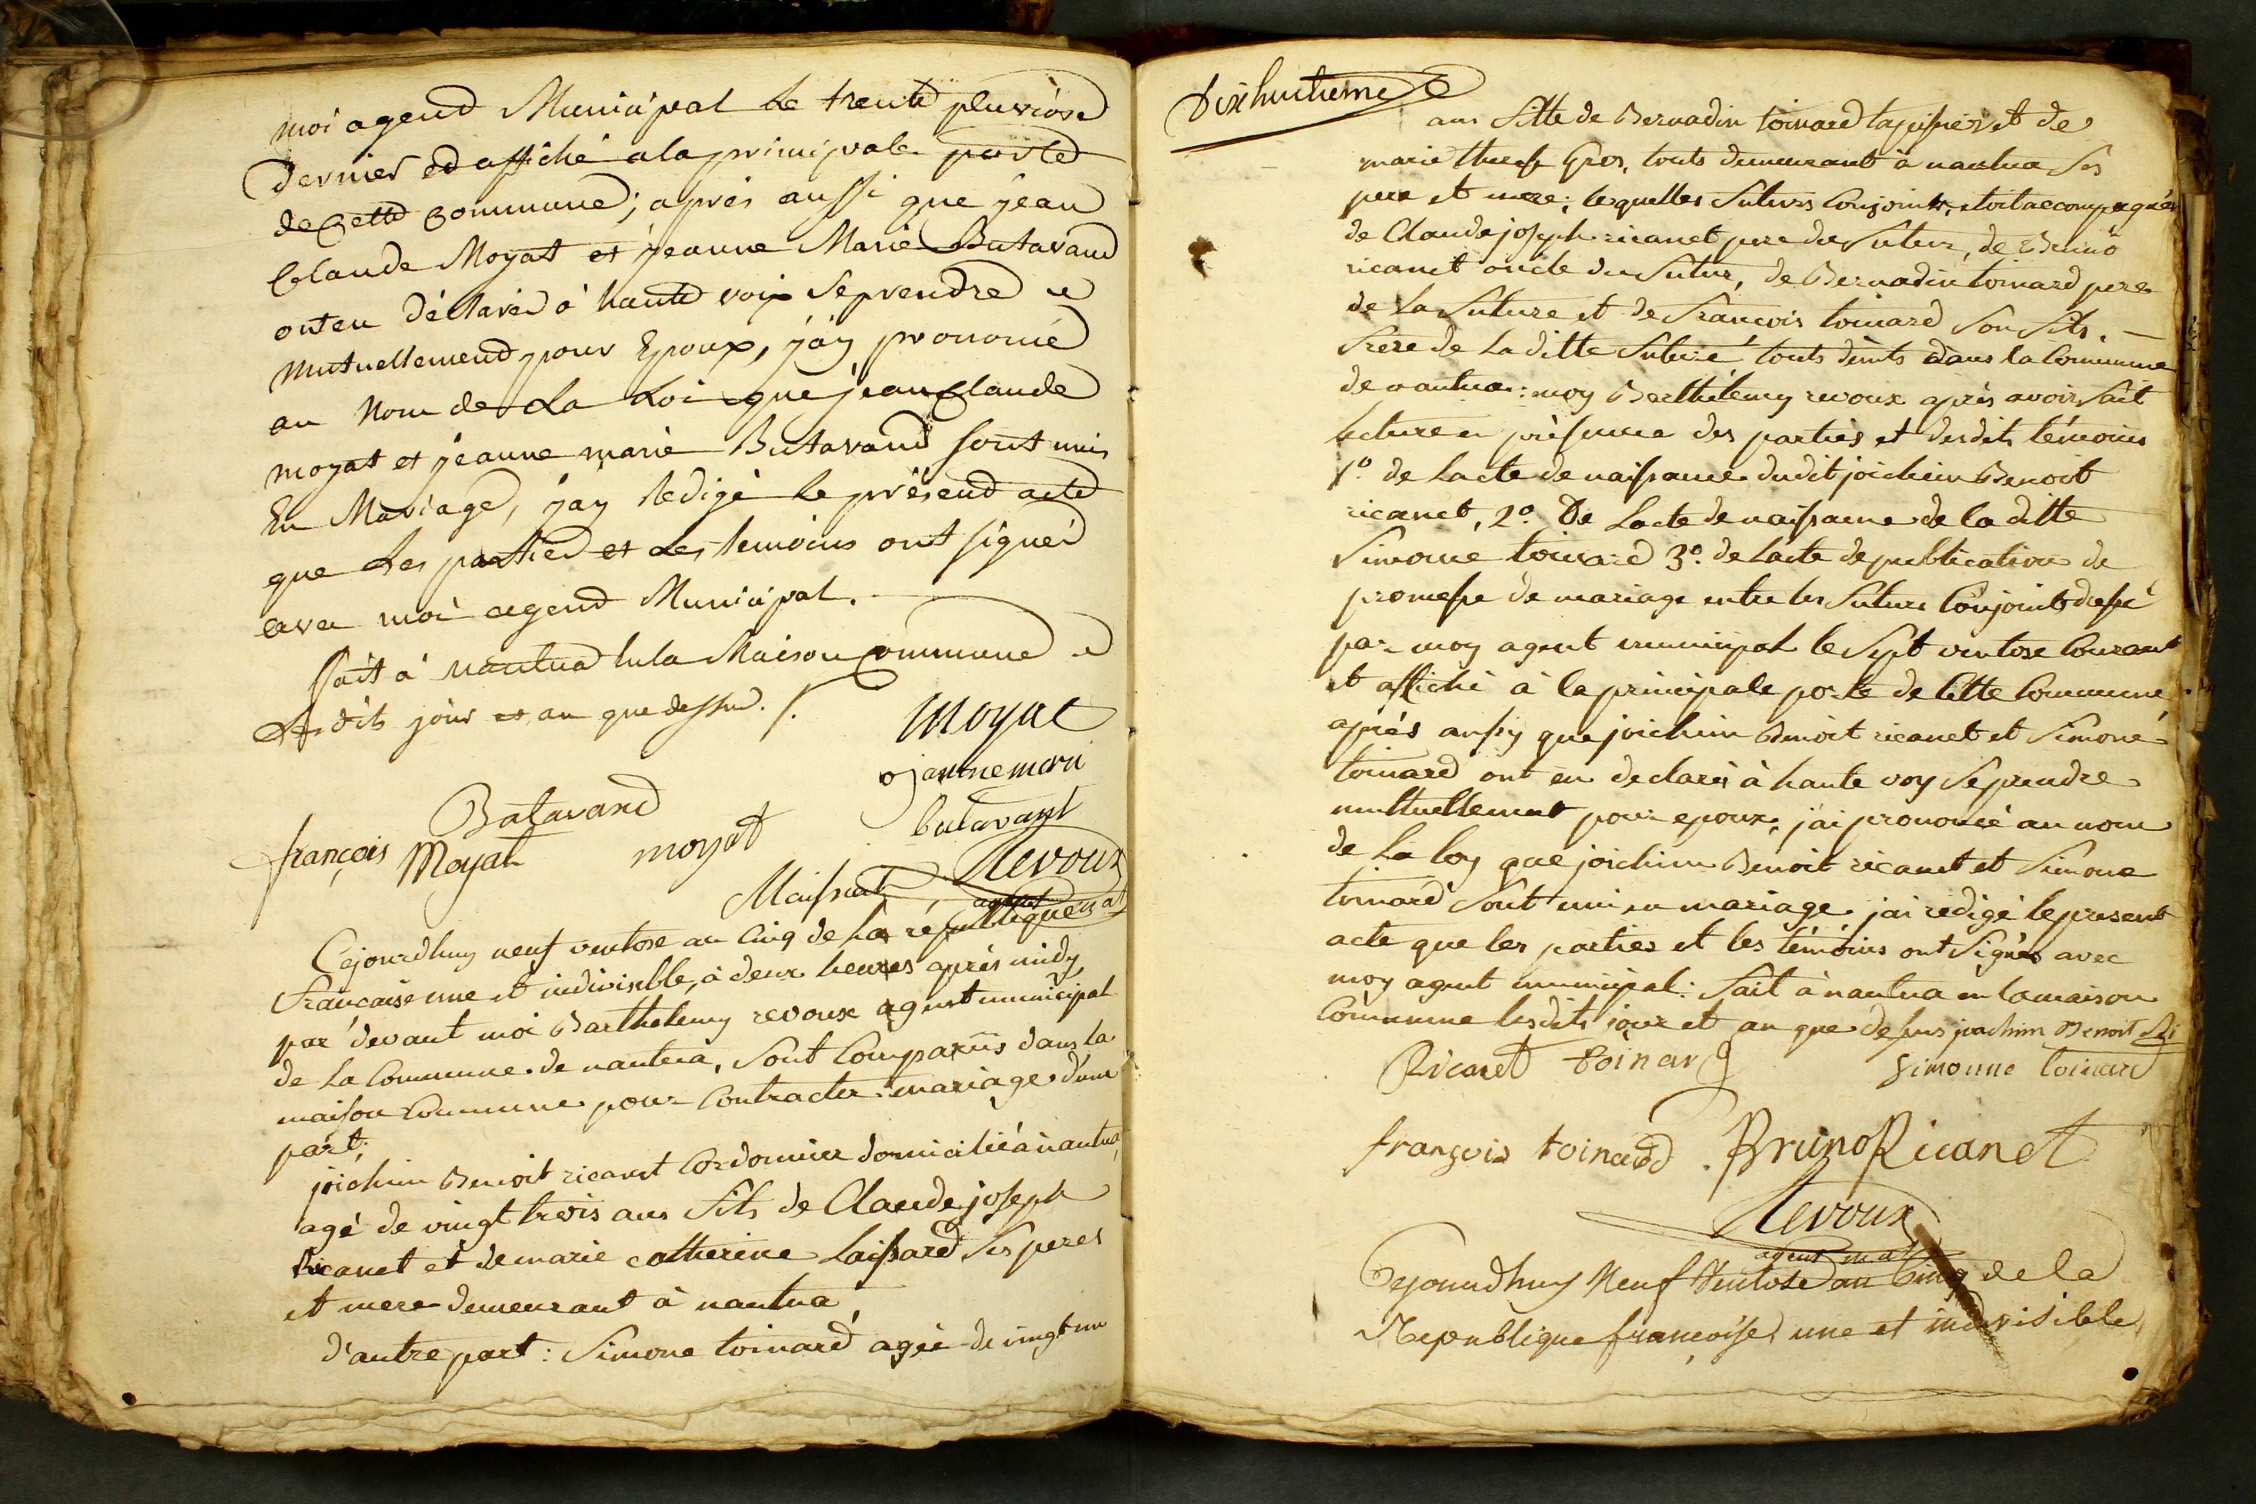 moi agend Municipal Le trente pluviose
dernier et affiché a la principale porte
de Cette Commune; après aussi que jean
Claude Moyat et jeanne Marie Butavand
onteu déclaré à haute voix Se prendre
Mutuellement pour Epoux, j'ay prononcé
au Nom de La Loi que jean Claude
moyat et jeanne marie Butavand sont unis
En Mariage, j'ay Redigé Le présend acte
que Les parties et Les temoins ont signés
avec moi agend Municipal.
fait à nantua En la Maison Commune
Les dits jour et an que dessus ./.
Moyat
jannemari
butavant
Batavand
françois Moyat
moyat
Maissiat
Revoux
agent mal
Cejourdhuy neuf ventose an Cinq de la république
francaise une et indivisible, à deux heures après midy
par devant moi Barthelemy revoux agent municipal
de la Commune de nantua, Sont Comparüs dans la
maison Commune pour Contracter mariage d'une
part;
joichim Benoit ricanet Cordonnier domicilié à nantua,
agé de vingt trois ans fils de Claude joseph
Ricanet et de marie catherine Laissard Ses peres
et mere demeurant à nantua,
d'autre part: Simone toinard agée de vingt un
Dixhuitieme
ans fille de Bernadin toinard tapissier et de
marie therese Gros, touts demeurant à nantua Ses
pere et mere; lequelles futurs Conjoints, etoit accompagnés
de Claude joseph ricanet pere du futur, de Bruno
ricanet oncle du futur, de Bernadin toinard pere
de La future et de francois toinard Son fils.—
frere de La ditte future touts dints dans la Commune
de nantua: moy Barthélemy revoux après avoir fait
lecture en présence des parties et desdits témoins
1º. de Lacte de naissance dudit joichim Benoit
ricanet, 2º. De Lacte de naissance de la ditte
Simone toinard 3º. de Lacte de publication de
promesse de mariage entre les futurs Conjoints dressé
par moy agent municipal le Sept ventose Courant
et affiché à la principale porte de Cette Commune,
après aussy que joichim Benoit ricanet et Simone
toinard ont eu declarés à haute voy Se prendre
muttuellement pour epoux, j'ai prononcé au nom
de La loy que joichim Benoit ricanet et Simone
toinard Sont uni en mariage j'ai redigé le present
acte que les parties et les témoins ont Signés avec
moy agent municipal: fait à nantua en la maison
Commune lesdits jour et an que dessus joachim Benoit
Ricanet toinard Simonne toinard
françois toinard. Bruno Ricanet
Revoux
agent mal
Cejourdhuy Neuf Ventose an Cinq de la
Republique françoise, une et indivisible,